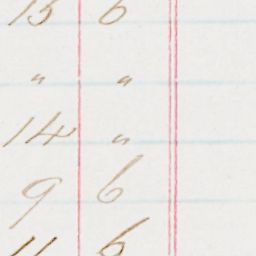 15 6
" "
14 "
9 6
11 6